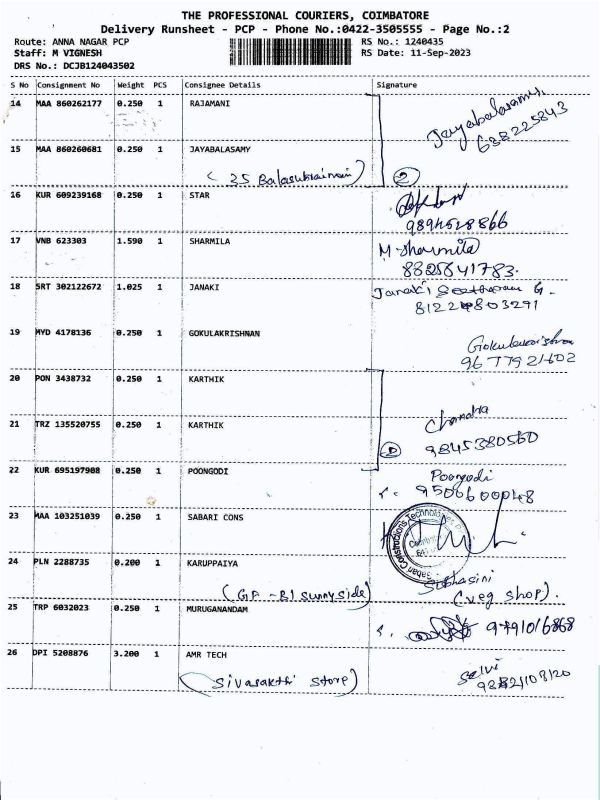 THE PROFESSIONAL COURIERS, COIMBATORE
Delivery Runsheet - PCP - Phone No.:0422-3505555 - Page No.:2
Route: ANNA NAGAR PCP RS No.: 1240435
Staff: M VIGNESH RS Date: 11-Sep-2023
DRS No.: DCJB124043502
S No Consignment No Weight PCS Consignee Details Signature
14 MAA 860262177 0.250 1 RAJAMANI
Jayabalasamy
638225843
15 MAA 860260681 0.250 1 JAYABALASAMY
(35 Balasubramani) 2
16 KUR 609239168 0.250 1 STAR
9894528866
17 VNB 623303 1.590 1 SHARMILA M. Sharmila
8825641783.
18 SRT 302122672 1.025 1 JANAKI Janaki G.
19 MYD 4178136 0.250 1 GOKULAKRISHNAN Gokulakrishnan
9677921602
20 PON 3438732 0.250 1 KARTHIK
Chandra
21 TRZ 135520755 0.250 1 KARTHIK 9845380560
22 KUR 695197908 0.250 1 POONGODI Poongodi
9500600048
23 MAA 103251039 0.250 1 SABARI CONS
24 PLN 2288735 0.200 1 KARUPPAIYA Subhasini
(GF - B1 Sunnyside) (veg shop).
25 TRP 6032023 0.250 1 MURUGANANDAM 9791016868
26 DPI 5208876 3.200 1 AMR TECH Selvi
(Sivasakthi Store)